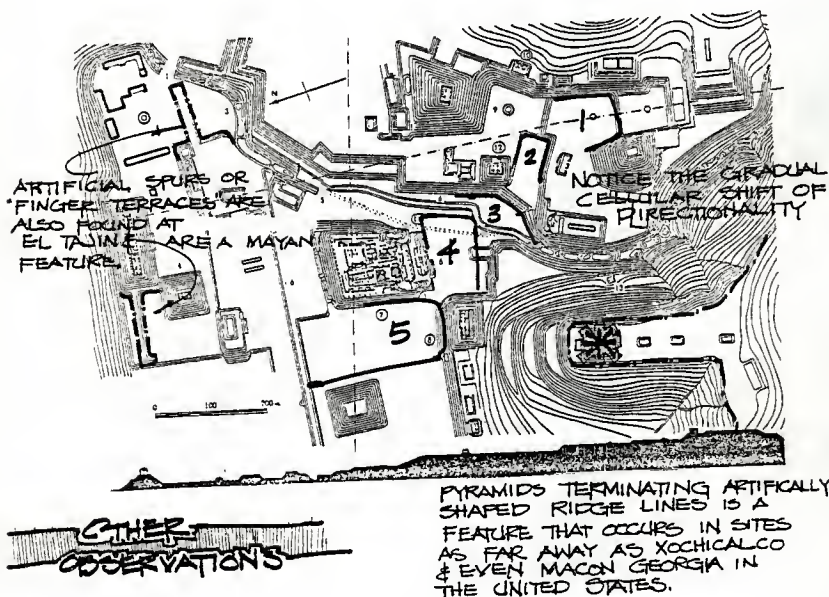 ARTIFICIAL SPURS OR
"FINGER TERRACES ARE
ALSO FOUND AT
EL TAJIN & ARE A MAYAN
FEATURE.
N
1
2
3
4
5
NOTICE THE GRADUAL
CELLULAR SHIFT OF
DIRECTIONALITY
0 100 200 m
OTHER
OBSERVATIONS
PYRAMIDS TERMINATING ARTIFICALLY
SHAPED RIDGE LINES IS A
FEATURE THAT OCCURS IN SITES
AS FAR AWAY AS XOCHICALCO
& EVEN MACON GEORGIA IN
THE UNITED STATES.